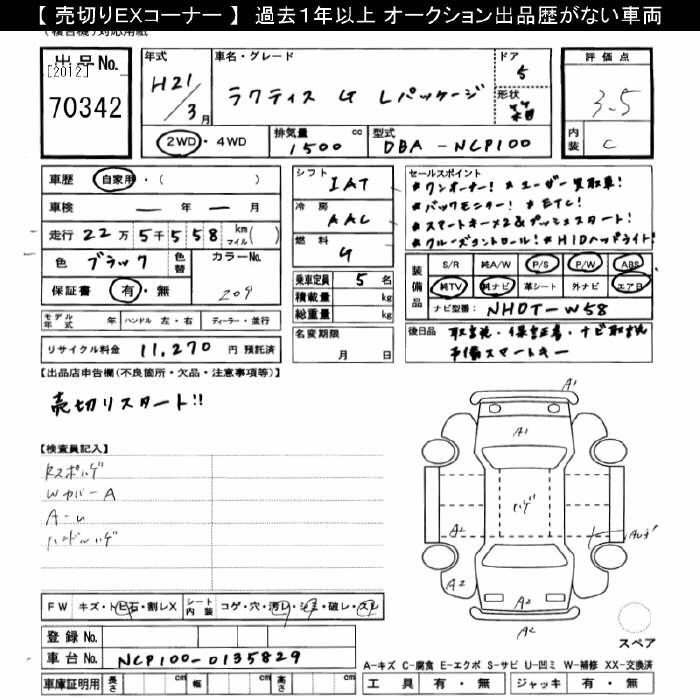 【 売切りEXコーナー 】 過去1年以上 オークション出品歴がない車両
出品No.
[2012]
70342
年式
H21/3月
車名・グレード
ラクティス G Lパッケージ
ドア
5
形状
評価点
3.5
内装
C
2WD・4WD
排気量 1500 cc
型式 DBA-NCP100
車歴 自家用・( )
車検 ー 年 ー 月
走行 22万5千558 km マイル( )
色 ブラック
色替
カラーNo. 209
保証書 有・無
モデル年式 年 ハンドル 左・右 ディーラー・並行
リサイクル料金 11,270 円 預託済
シフト IAT
冷房 AAC
燃料 G
乗車定員 5 名
積載量 kg
総重量 kg
名変期限
月 日
セールスポイント
★ワンオーナー! ★ユーザー買取車!
★バックモニター! ★ETC!
★スマートキー×2&プッシュスタート!
★クルーズコントロール! ★HIDヘッドライト!
装備品
S/R 純A/W P/S P/W ABS
純TV 純ナビ 革シート 外ナビ エアB
ナビ型番: NHDT-W58
後日品 取説・保証書・ナビ取説
予備スマートキー
【出品店申告欄(不良箇所・欠品・注意事項等)】
売切りスタート!!
【検査員記入】
Rスポハゲ
WカバーA
A-U
ハンドルハゲ
FW キズ・トビ石・割レX
シート内装 コゲ・穴・汚レ・シミ・破レ・スレ
登録No.
車台No. NCP100-0135829
車庫証明用 長さ cm 幅 cm 高さ cm
A1
A1
ハゲ
A2
A2
A2
A2
スペア
A-キズ C-腐食 E-エクボ S-サビ U-凹ミ W-補修 XX-交換済
工具 有・無 ジャッキ 有・無